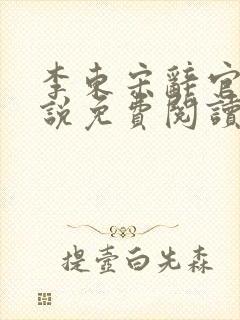 李東宋辭官
說免費閱讀
提壺白先森